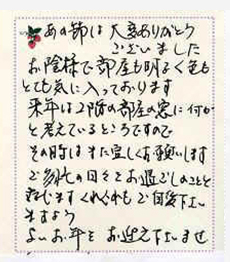 あの節は大変ありがとう
ございました
お陰様で部屋も明るく色も
とても気に入っております
来年は2階の部屋の窓に何か
と考えているところですので
その時はまた宜しくお願いします
ご多忙の日々をお過しのことと
存じます くれぐれもご自愛下さい
ませ
よいお年をお迎え下いませ